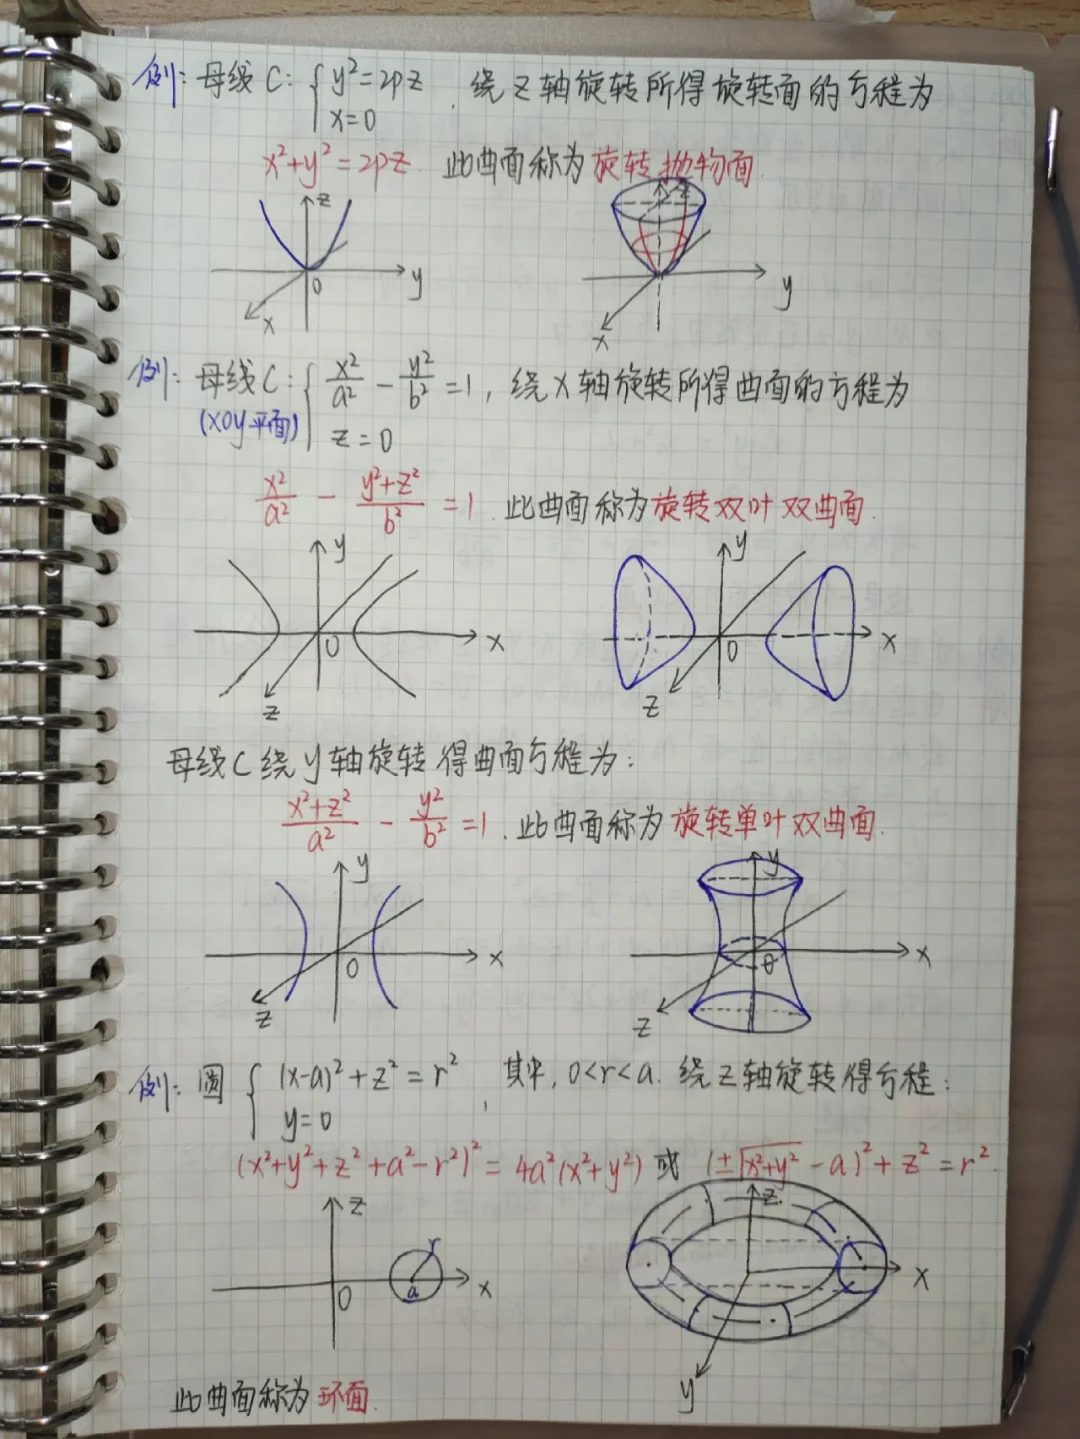 例: 母线C: { y²=2pz, 绕Z轴旋转所得旋转面的方程为
x=0
x²+y²=2pz. 此曲面称为旋转抛物面
z z
0 y y
x x
例: 母线C: { x²/a² - y²/b² = 1, 绕X轴旋转所得曲面的方程为
(xoy平面) z=0
x²/a² - (y²+z²)/b² = 1. 此曲面称为旋转双叶双曲面.
y y
0 x 0 x
z z
母线C绕y轴旋转得曲面方程为:
(x²+z²)/a² - y²/b² = 1. 此曲面称为旋转单叶双曲面.
y y
0 x 0 x
z z
例: 圆 { (x-a)²+z²=r², 其中, 0<r<a. 绕Z轴旋转得方程:
y=0
(x²+y²+z²+a²-r²)²=4a²(x²+y²) 或 (±√(x²+y²)-a)²+z²=r².
z r z
0 a x x
y
此曲面称为环面.